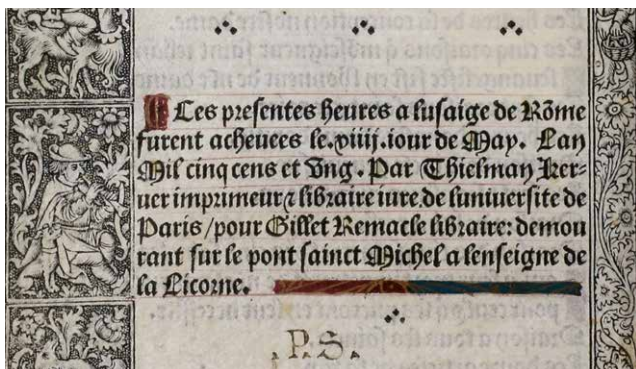 Ces presentes heures a lusaige de Rõme
furent acheuees le.xiiij.iour de May. Lan
Mil cinq cens et vng. Par Thielman Ker-
uer imprimeur ⁊ libraire iure.de luniuersite de
Paris/pour Gillet Remacle libraire: demou
rant sur le pont sainct Michel a lenseigne de
la Licorne.
.P.S.